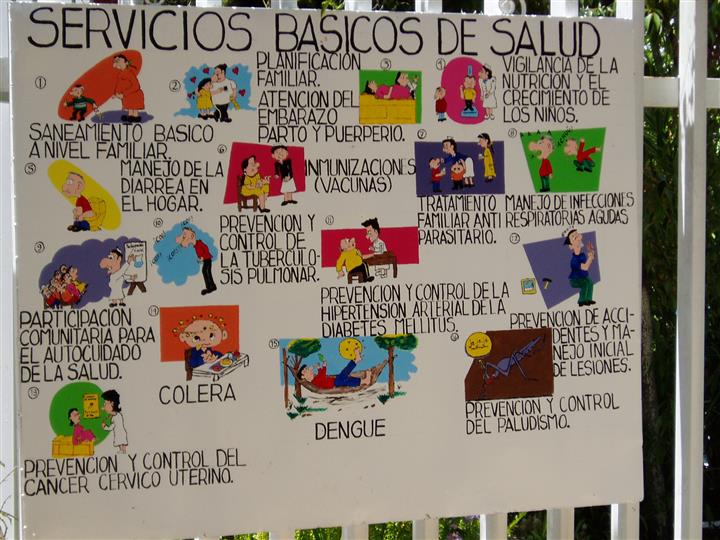 SERVICIOS BASICOS DE SALUD
1
SANEAMIENTO BASICO
A NIVEL FAMILIAR.
2
PLANIFICACIÓN
FAMILIAR.
3
ATENCION DEL
EMBARAZO
PARTO Y PUERPERIO.
4
VIGILANCIA DE LA
NUTRICIÓN Y EL
CRECIMIENTO DE
LOS NIÑOS.
5
MANEJO DE LA
DIARREA EN
EL HOGAR.
6
INMUNIZACIONES
(VACUNAS)
7
TRATAMIENTO
FAMILIAR ANTI
PARASITARIO.
8
MANEJO DE INFECCIONES
RESPIRATORIAS AGUDAS
9
PARTICIPACIÓN
COMUNITARIA PARA
EL AUTOCUIDADO
DE LA SALUD.
10
PREVENCION Y
CONTROL DE
LA TUBERCULO-
SIS PULMONAR.
11
PREVENCION Y CONTROL DE LA
HIPERTENSIÓN ARTERIAL DE LA
DIABETES MELLITUS.
12
PREVENCION DE ACCI-
DENTES Y MA-
NEJO INICIAL
DE LESIONES.
13
PREVENCION Y CONTROL DEL
CANCER CERVICO UTERINO.
14
COLERA
15
DENGUE
16
PREVENCION Y CONTROL
DEL PALUDISMO.